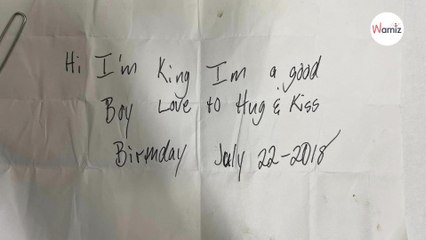 Wamiz
Hi I'm King I'm a good
Boy Love to Hug & Kiss
Birthday July 22-2018